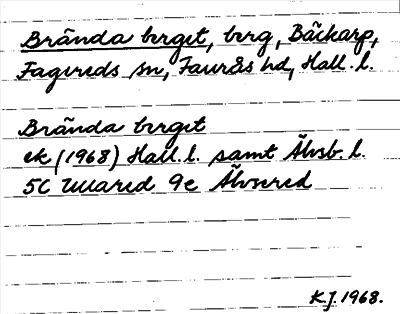 Brända berget, berg, Bäckarp,
Fagereds sn, Faurås hd, Hall. l.
Brända berget
ek (1968) Hall. l. samt Älvsb. l.
5C Ullared 9e Älvsered
K.J. 1968.